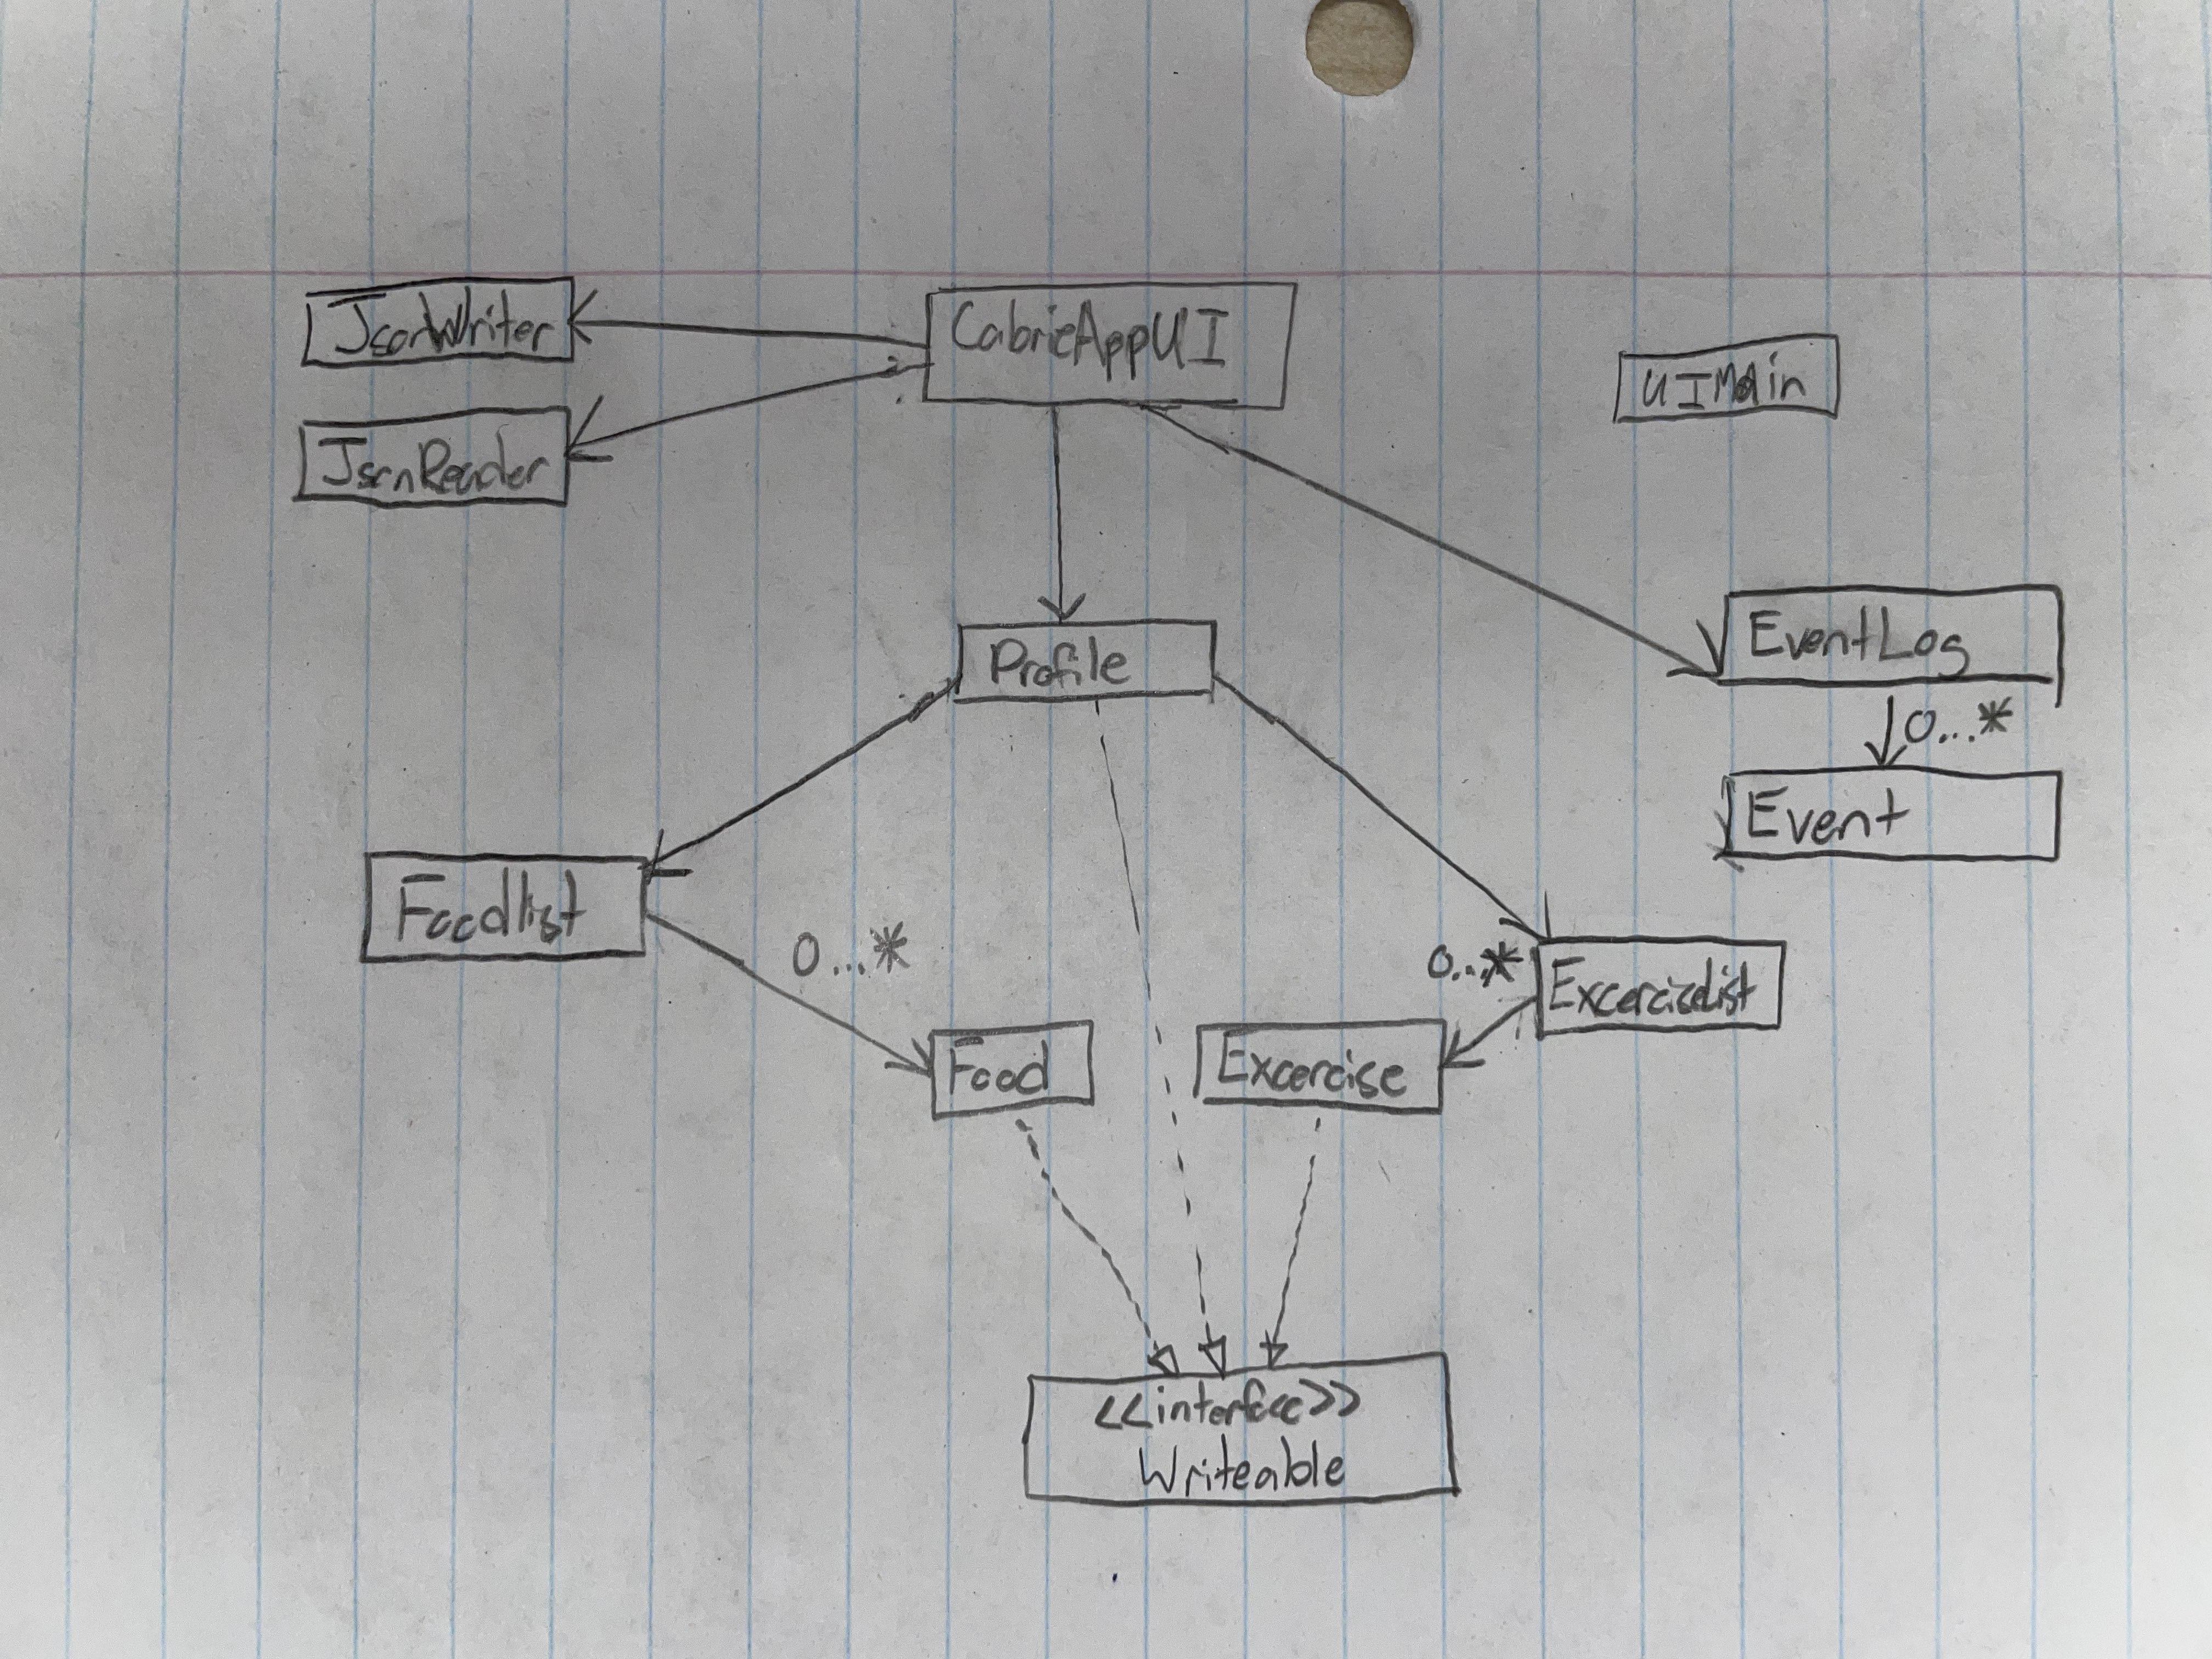 JsonWriter
CalorieAppUI
UIMain
JsonReader
Profile
EventLog
0...*
Event
Foodlist
0...*
0...*
Excerciselist
Food
Excercise
<<interface>>
Writeable